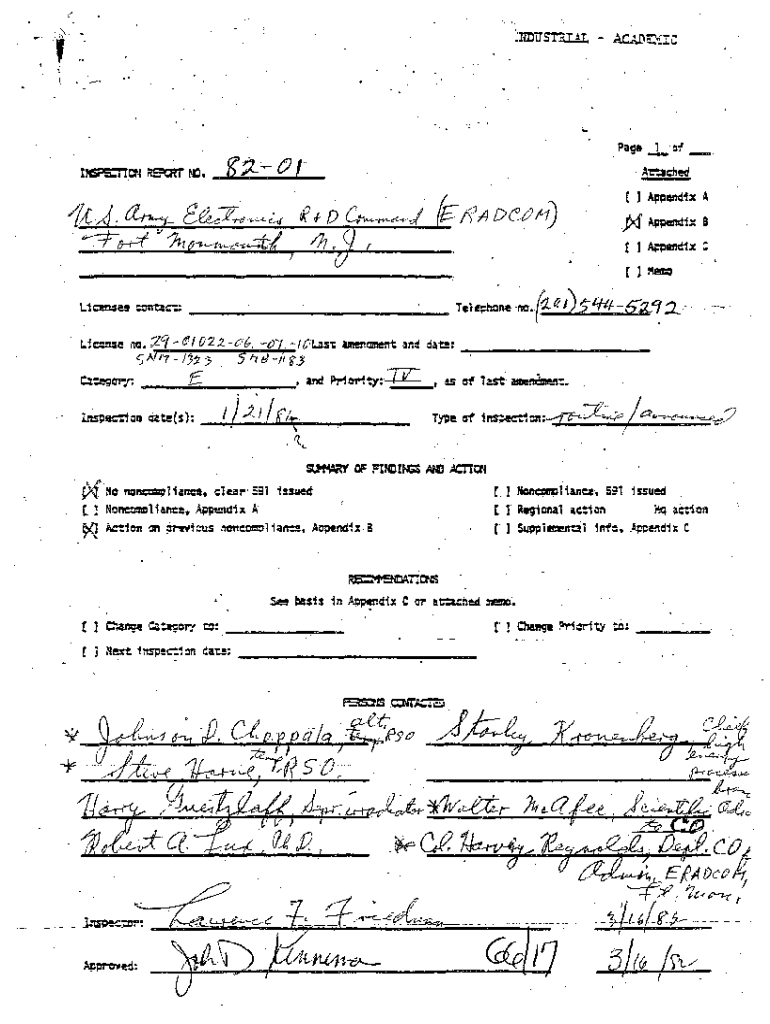 INDUSTRIAL - ACADEMIC
Page 1 of
INSPECTION REPORT NO. 82-01
Attached
[ ] Appendix A
U.S. Army Electronics R+D Command (ERADCOM)
[X] Appendix B
Fort Monmouth, N.J.
[ ] Appendix C
[ ] Memo
Licensee contact: Telephone no. (201) 544-5292
License no. 29-01022-06, -07, -10 Last amendment and date:
SNM-1323 SMB-1183
Category: E, and Priority: IV, as of last amendment.
Inspection date(s): 1/21/82 Type of inspection: routine/announced
2
SUMMARY OF FINDINGS AND ACTION
[X] No noncompliance, clear 591 issued [ ] Noncompliance, 591 issued
[ ] Noncompliance, Appendix A [ ] Regional action Hq action
[X] Action on previous noncompliance, Appendix B [ ] Supplemental info, Appendix C
RECOMMENDATIONS
See basis in Appendix C or attached memo.
[ ] Change Category to: [ ] Change Priority to:
[ ] Next inspection date:
PERSONS CONTACTED
* Johnson D. Chappala, alt. RSO Stanley Kronenberg, Chief high energy
* Steve Horne, RSO.
Harry * Walter McAfee, Scientific
to CO
Robert A. Lux, Ph.D., * Col. Harvey Reynolds, Dept. CO,
Admin, ERADCOM,
Ft. Mon.
Inspector: Lawrence F. Friedman 3/16/82
Approved: John D Kinneman 3/16/82